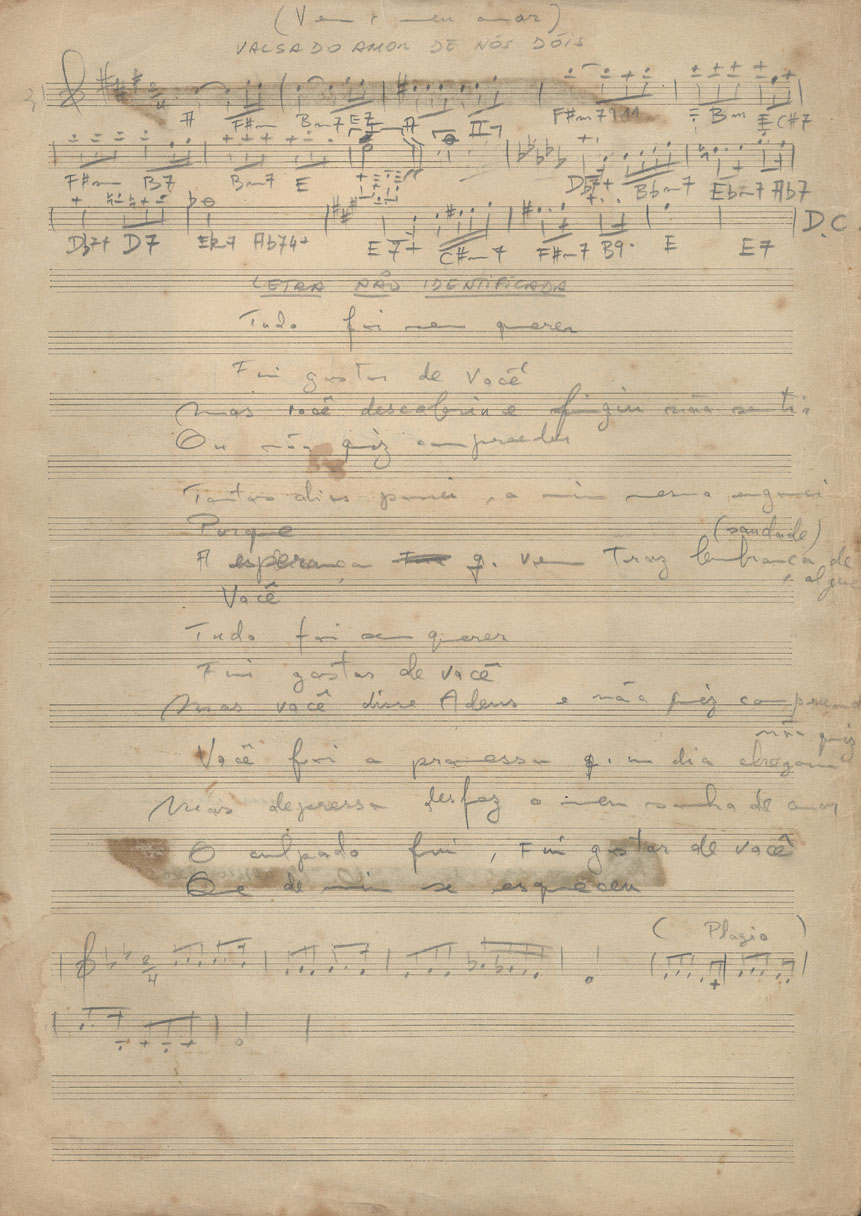 (Vem, meu amor)
VALSA DO AMOR DE NÓS DÓIS
A F#m Bm7 E7 A II7 F#m7 911 Bm E C#7
F#m B7 Bm7 E Db7+ Bbm7 Ebm7 Ab7
Db7+ D7 Eb7 Ab74+ E7 C#m7 F#m7 B9 E E7 D.C.
LETRA NÃO IDENTIFICADA
Tudo foi sem querer
Fui gostar de você
Mas você descobriu e fingiu não sentir
Ou não quiz compreender
Tantos dias passei, a mim mesma enganei
Porque (saudade)
A esperança q. vem Traz lembrança de
Você
Tudo foi sem querer
Fui gostar de você
Mas você disse Adeus e não quiz
não quiz
Você foi a promessa q. um dia chegou
Mas depressa desfaz o meu sonho de amor
O culpado fui, Fui gostar de você
Que de mim se esqueceu
(Plagio)